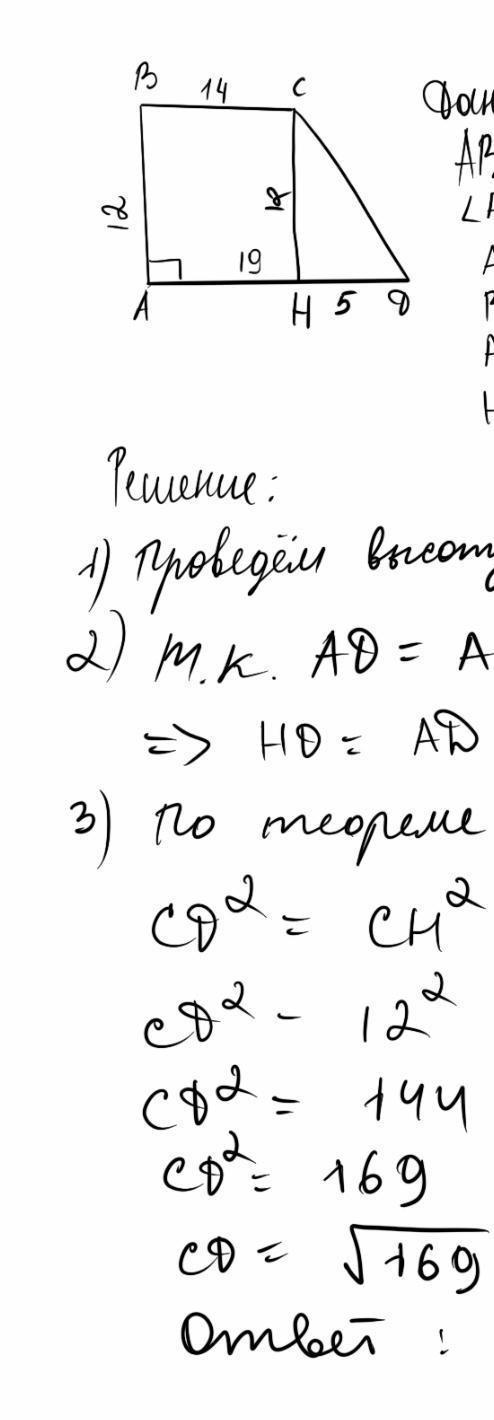 B 14 C
12 12
19
A H 5 D
Дан
AB
∠A
A
A
H
Решение:
1) Проведём высоту
2) т.к. AD = A
=> HD = AD
3) По теореме
CD² = CH²
CD² - 12²
CD² = 144
CD² = 169
CD = √169
Ответ :